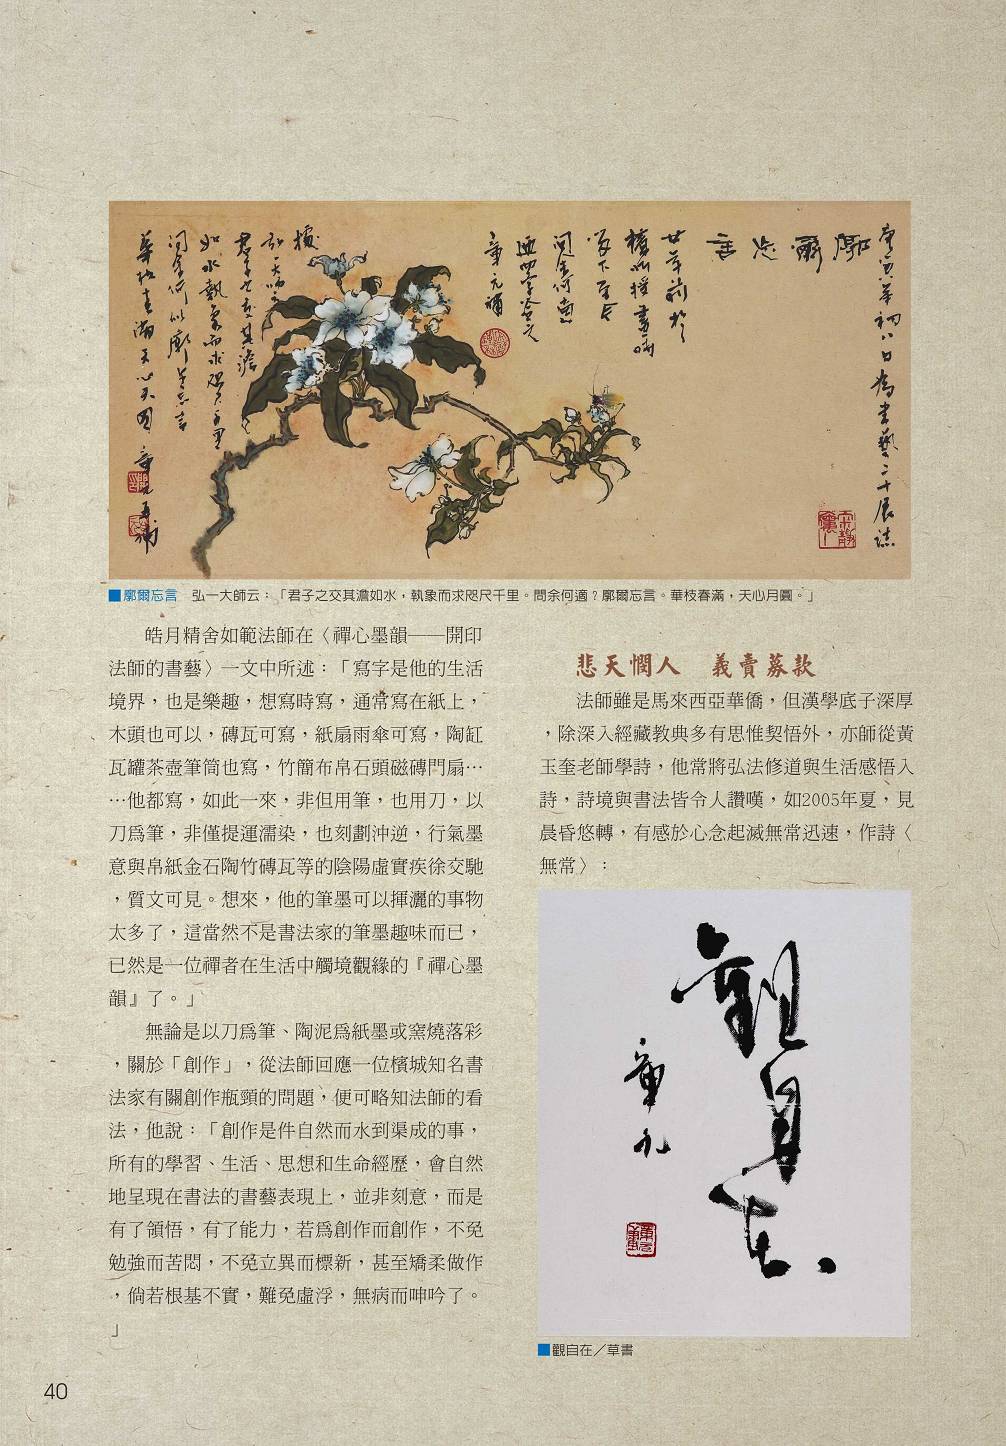 廓爾忘言
■廓爾忘言　弘一大師云：「君子之交其澹如水，執象而求咫尺千里。問余何適？廓爾忘言。華枝春滿，天心月圓。」
皓月精舍如範法師在〈禪心墨韻——開印
法師的書藝〉一文中所述：「寫字是他的生活
境界，也是樂趣，想寫時寫，通常寫在紙上，
木頭也可以，磚瓦可寫，紙扇雨傘可寫，陶缸
瓦罐茶壺筆筒也寫，竹簡布帛石頭磁磚門扇…
…他都寫，如此一來，非但用筆，也用刀，以
刀爲筆，非僅提運濡染，也刻劃沖逆，行氣墨
意與帛紙金石陶竹磚瓦等的陰陽虛實疾徐交馳
，質文可見。想來，他的筆墨可以揮灑的事物
太多了，這當然不是書法家的筆墨趣味而已，
已然是一位禪者在生活中觸境觀緣的『禪心墨
韻』了。」
無論是以刀爲筆、陶泥爲紙墨或窯燒落彩
，關於「創作」，從法師回應一位檳城知名書
法家有關創作瓶頸的問題，便可略知法師的看
法，他說：「創作是件自然而水到渠成的事，
所有的學習、生活、思想和生命經歷，會自然
地呈現在書法的書藝表現上，並非刻意，而是
有了領悟，有了能力，若爲創作而創作，不免
勉強而苦悶，不免立異而標新，甚至矯柔做作
，倘若根基不實，難免虛浮，無病而呻吟了。
」
悲天憫人　義賣募款
法師雖是馬來西亞華僑，但漢學底子深厚
，除深入經藏教典多有思惟契悟外，亦師從黃
玉奎老師學詩，他常將弘法修道與生活感悟入
詩，詩境與書法皆令人讚嘆，如2005年夏，見
晨昏悠轉，有感於心念起滅無常迅速，作詩〈
無常〉：
觀自在
■觀自在／草書
40